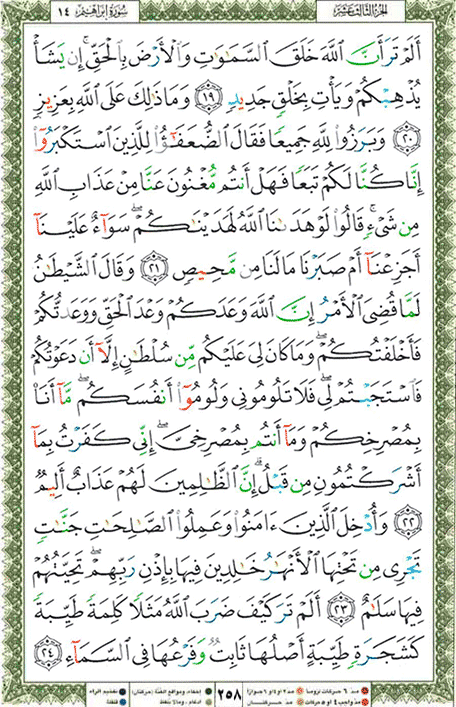 سورة إبراهيم ١٤
الجزء الثالث عشر
أَلَمْ تَرَ أَنَّ ٱللَّهَ خَلَقَ ٱلسَّمَٰوَٰتِ وَٱلْأَرْضَ بِٱلْحَقِّ ۚ إِن يَشَأْ
يُذْهِبْكُمْ وَيَأْتِ بِخَلْقٍ جَدِيدٍ ١٩ وَمَا ذَٰلِكَ عَلَى ٱللَّهِ بِعَزِيزٍ
٢٠ وَبَرَزُوا۟ لِلَّهِ جَمِيعًا فَقَالَ ٱلضُّعَفَٰٓؤُا۟ لِلَّذِينَ ٱسْتَكْبَرُوٓا۟
إِنَّا كُنَّا لَكُمْ تَبَعًا فَهَلْ أَنتُم مُّغْنُونَ عَنَّا مِنْ عَذَابِ ٱللَّهِ
مِن شَىْءٍ ۚ قَالُوا۟ لَوْ هَدَىٰنَا ٱللَّهُ لَهَدَيْنَٰكُمْ ۖ سَوَآءٌ عَلَيْنَآ
أَجَزِعْنَآ أَمْ صَبَرْنَا مَا لَنَا مِن مَّحِيصٍ ٢١ وَقَالَ ٱلشَّيْطَٰنُ
لَمَّا قُضِىَ ٱلْأَمْرُ إِنَّ ٱللَّهَ وَعَدَكُمْ وَعْدَ ٱلْحَقِّ وَوَعَدتُّكُمْ
فَأَخْلَفْتُكُمْ ۖ وَمَا كَانَ لِىَ عَلَيْكُم مِّن سُلْطَٰنٍ إِلَّآ أَن دَعَوْتُكُمْ
فَٱسْتَجَبْتُمْ لِى ۖ فَلَا تَلُومُونِى وَلُومُوٓا۟ أَنفُسَكُم ۖ مَّآ أَنَا۠
بِمُصْرِخِكُمْ وَمَآ أَنتُم بِمُصْرِخِىَّ ۖ إِنِّى كَفَرْتُ بِمَآ
أَشْرَكْتُمُونِ مِن قَبْلُ ۗ إِنَّ ٱلظَّٰلِمِينَ لَهُمْ عَذَابٌ أَلِيمٌ
٢٢ وَأُدْخِلَ ٱلَّذِينَ ءَامَنُوا۟ وَعَمِلُوا۟ ٱلصَّٰلِحَٰتِ جَنَّٰتٍ
تَجْرِى مِن تَحْتِهَا ٱلْأَنْهَٰرُ خَٰلِدِينَ فِيهَا بِإِذْنِ رَبِّهِمْ ۖ تَحِيَّتُهُمْ
فِيهَا سَلَٰمٌ ٢٣ أَلَمْ تَرَ كَيْفَ ضَرَبَ ٱللَّهُ مَثَلًا كَلِمَةً طَيِّبَةً
كَشَجَرَةٍ طَيِّبَةٍ أَصْلُهَا ثَابِتٌ وَفَرْعُهَا فِى ٱلسَّمَآءِ ٢٤
مدّ ٦ حركات لزوماً مدّ ٢ أو ٤ أو ٦ جوازاً
مدّ واجب ٤ أو ٥ حركات مدّ حركتان
٢٥٨
إخفاء، ومواقع الغُنَّة (حركتان) تفخيم الراء
ادغام، وما لا يُلفَظ قلقلة